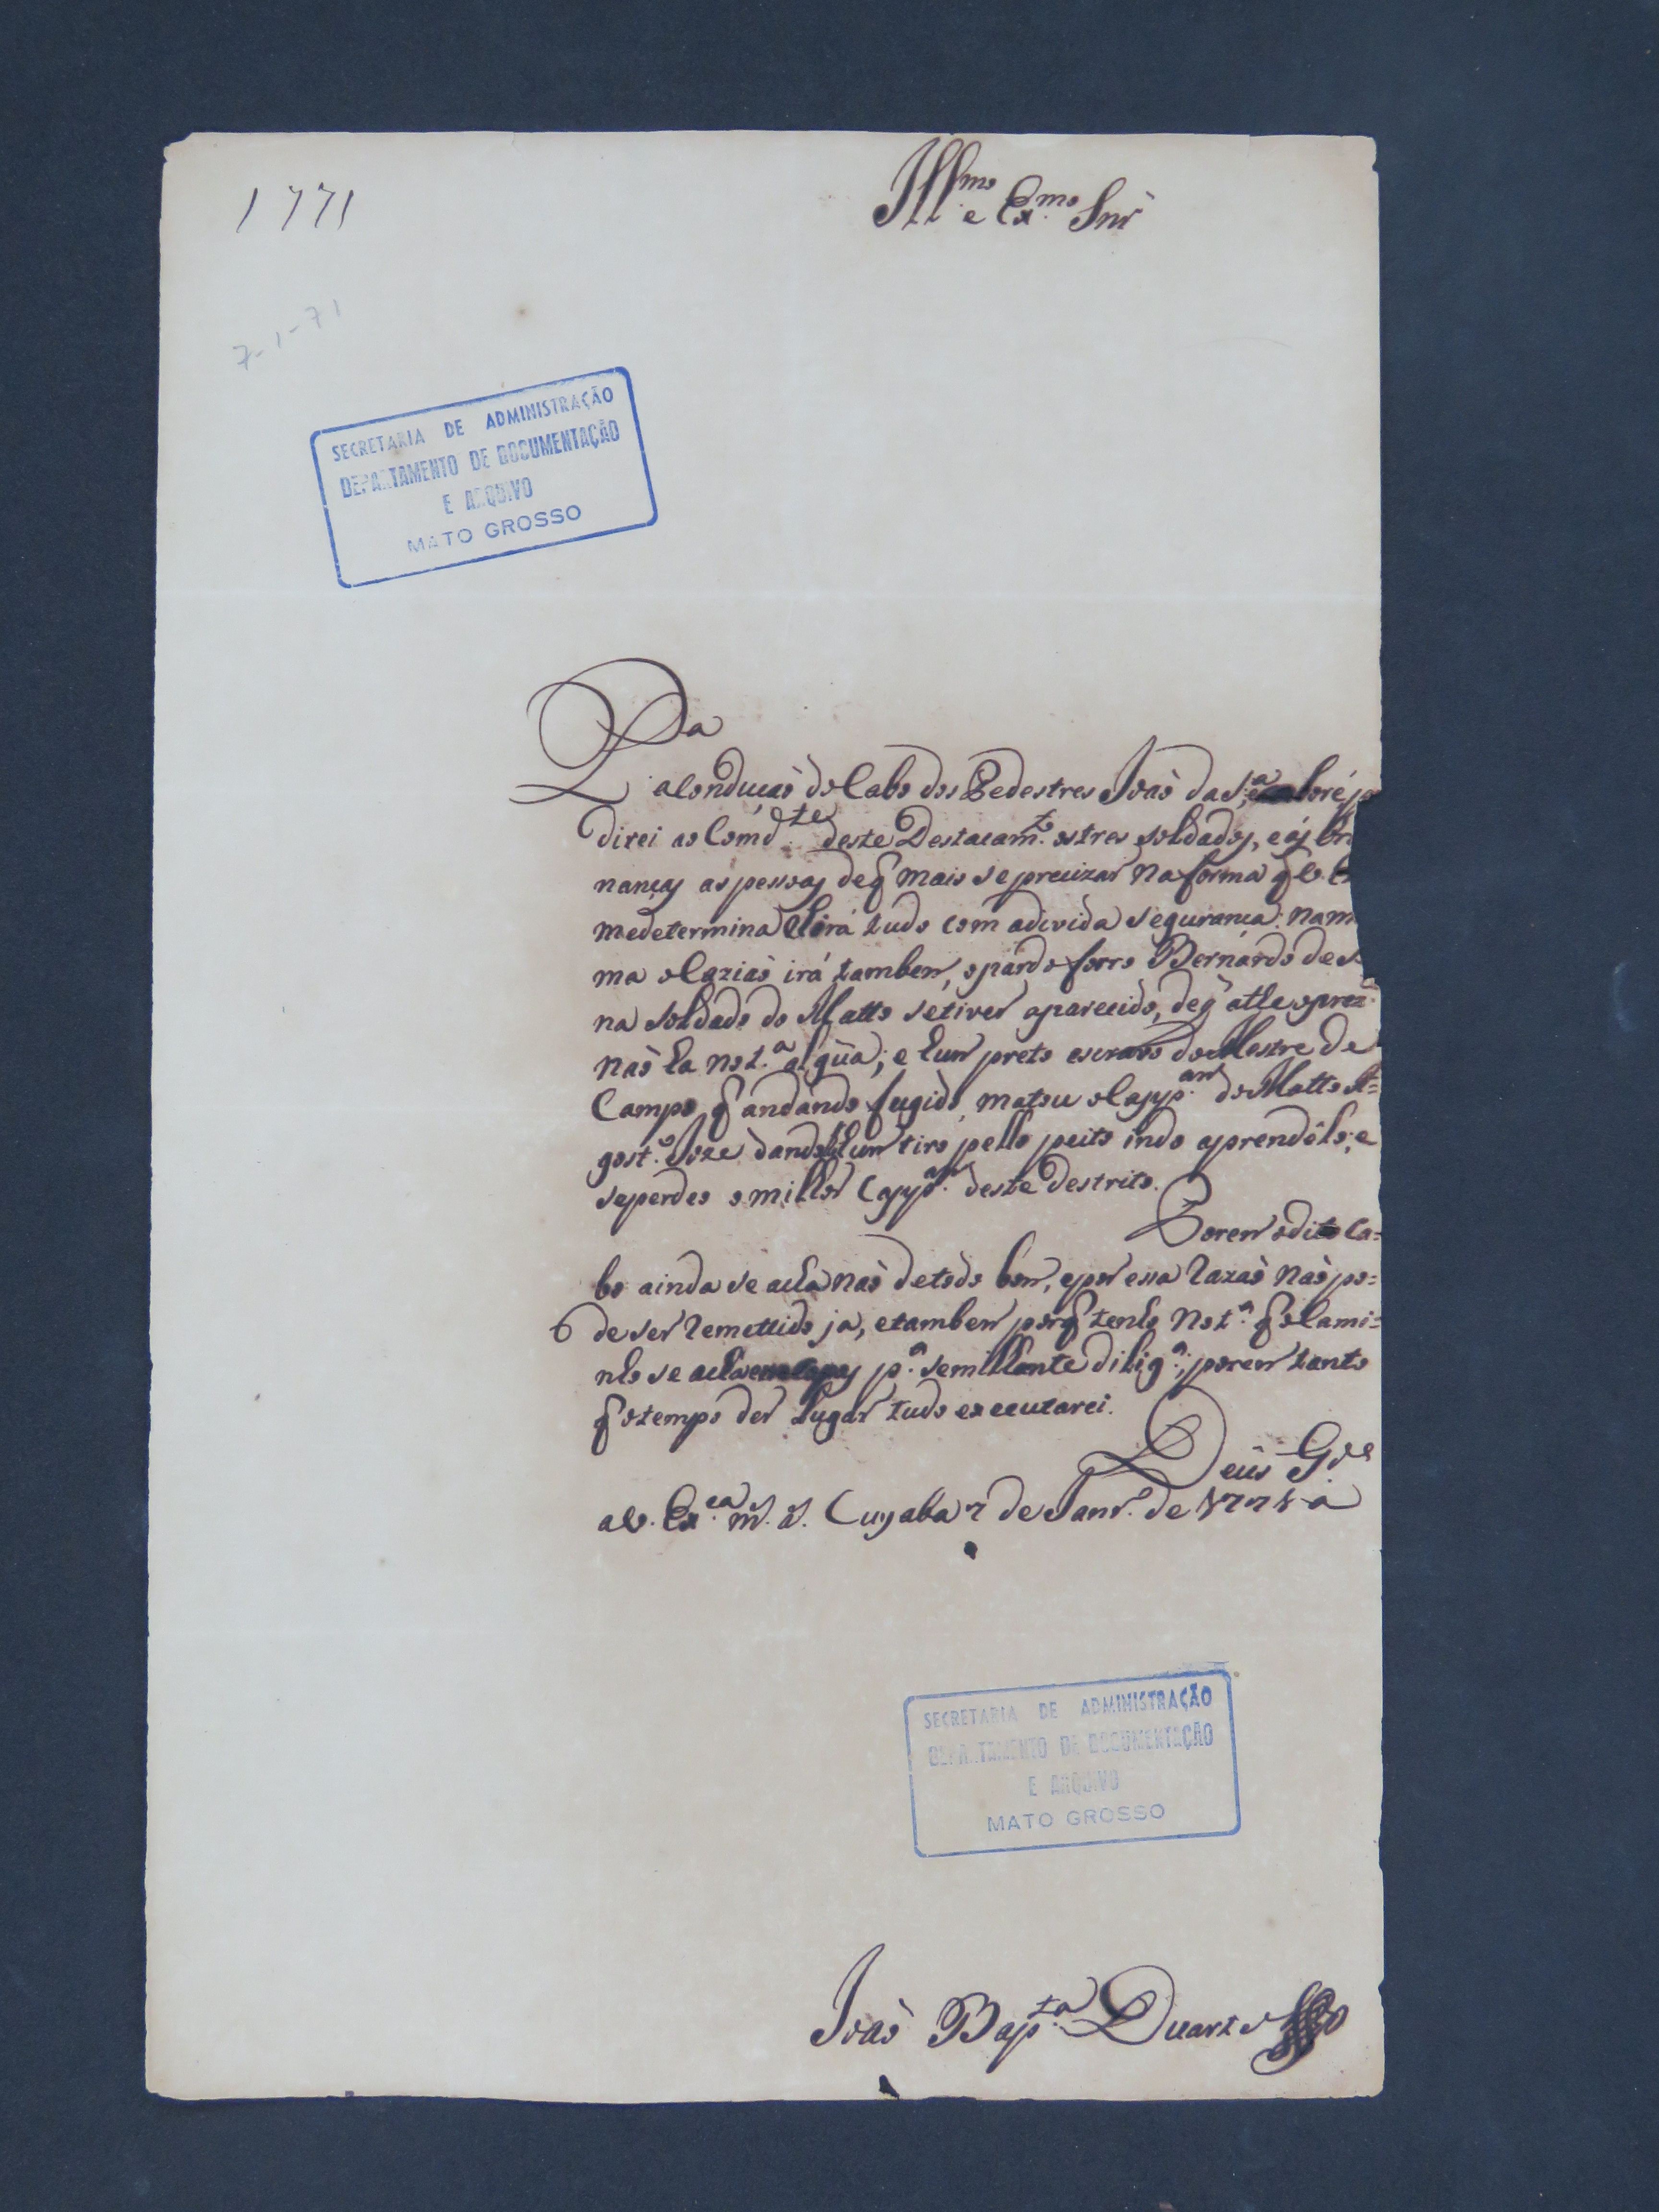 1771
Ill.mo e Ex.mo Snr
7-1-71
SECRETARIA DE ADMINISTRAÇÃO
DEPARTAMENTO DE DOCUMENTAÇÃO
E ARQUIVO
MATO GROSSO
Pa
a Conduçaõ do Cabo dos Pedestres Joaõ da S.a
direi ao Comd.te deste Destacam.to os tres soldados, e ás Or
nanças as pessoas de q mais se precizar na forma q V. E
me determina e hirá tudo com a divida segurança: na m
ma ocaziaõ irá tambem, o pardo forro Bernardo de S
na soldado do Matto se tiver aparecido, de q athe o prez.
naõ ha not.a algũa; e hum preto escravo do Mestre de
Campo q andando fugido, matou o Capp.am do Matto A=
gost.o Joze dandolhe hum tiro pello peito indo aprendêlo; e
se perdeo o milhor Capp.am deste destrito.
Porem o dito Ca=
bo ainda se acha naõ de todo bom, e por essa razaõ naõ po=
de ser remettido ja, e tambem porq tenho not.a q o Cami=
nho se acha p.a semilhante dilig.a; porem tanto
q o tempo der lugar tudo executarei.
Deus G.de
a V. Ex.ca m. a. Cuyaba 7 de Janr.o de 1771 a
SECRETARIA DE ADMINISTRAÇÃO
DEPARTAMENTO DE DOCUMENTAÇÃO
E ARQUIVO
MATO GROSSO
Joaõ Bap.ta Duarte